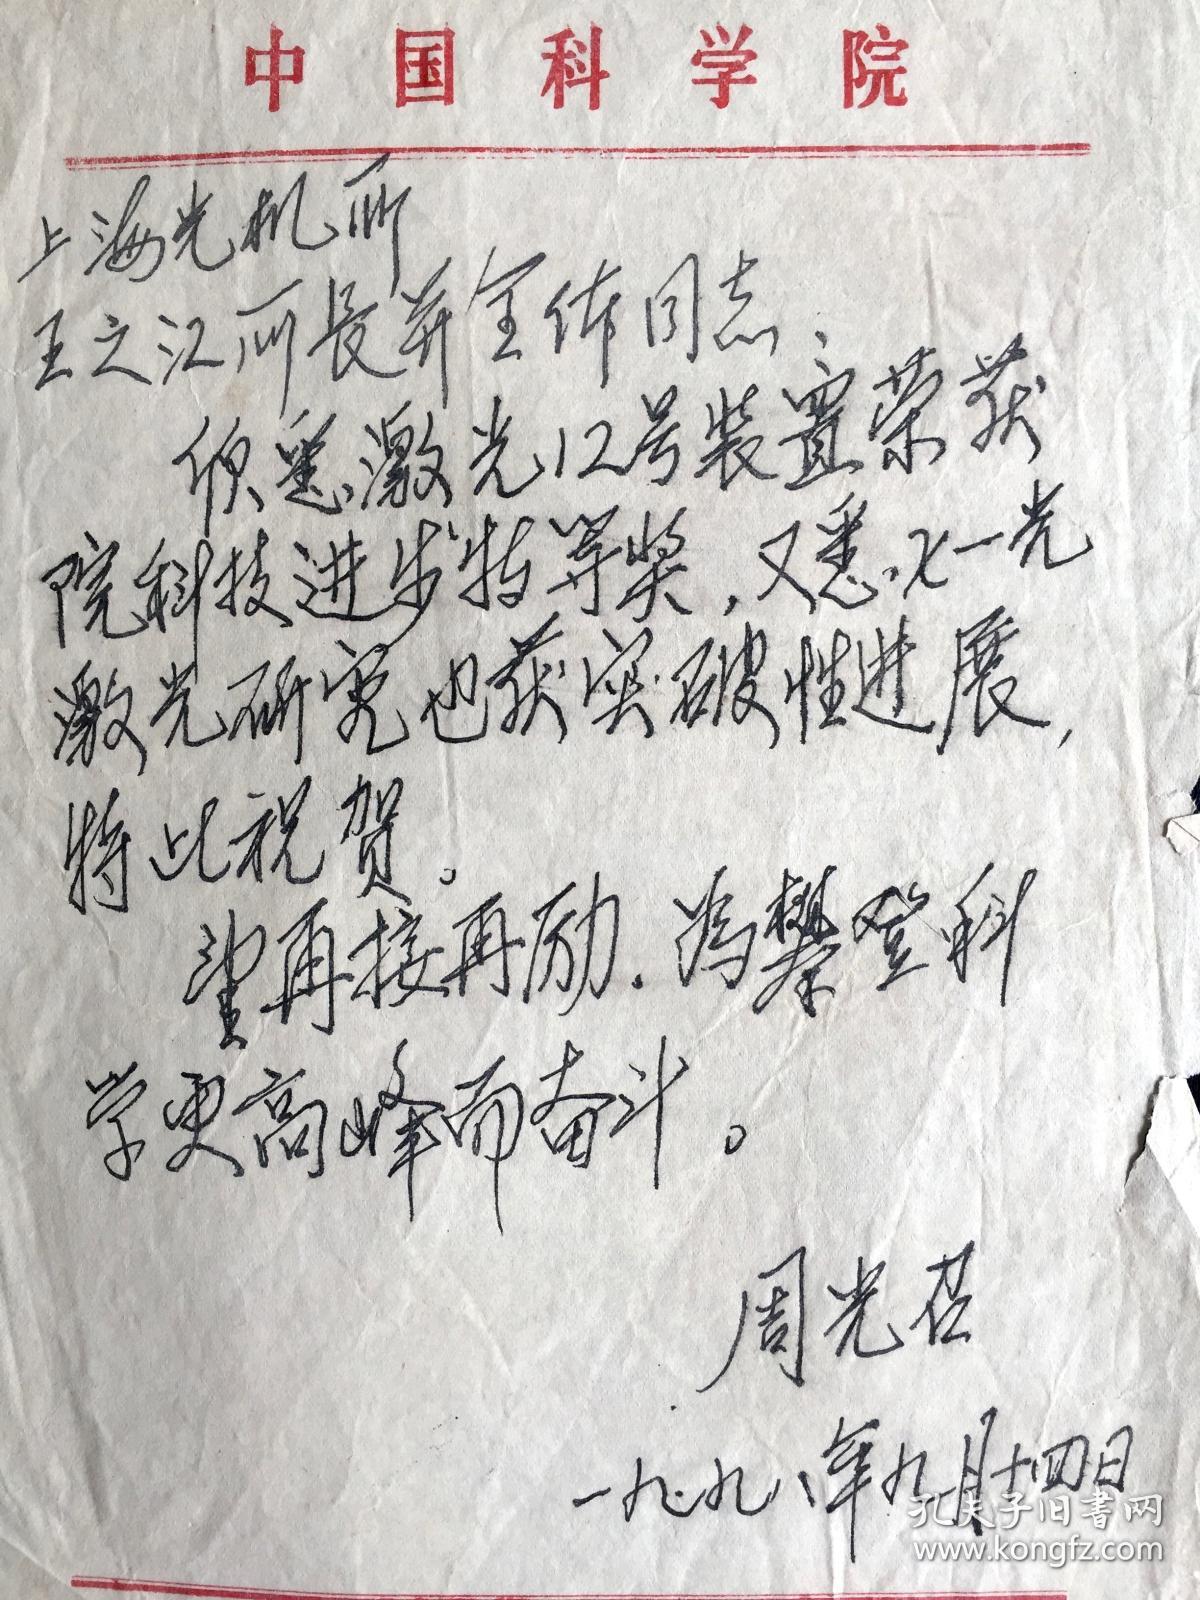 中国科学院
上海光机所
王之江所長并全体同志、
欣悉激光12号装置荣获
院科技进步特等奖，又悉X一光
激光研究也获突破性进展，
特此祝贺。
望再接再励．为攀登科
学更高峰而奋斗。
周光召
一九九八年九月十四日
孔夫子旧书网
www.kongfz.com